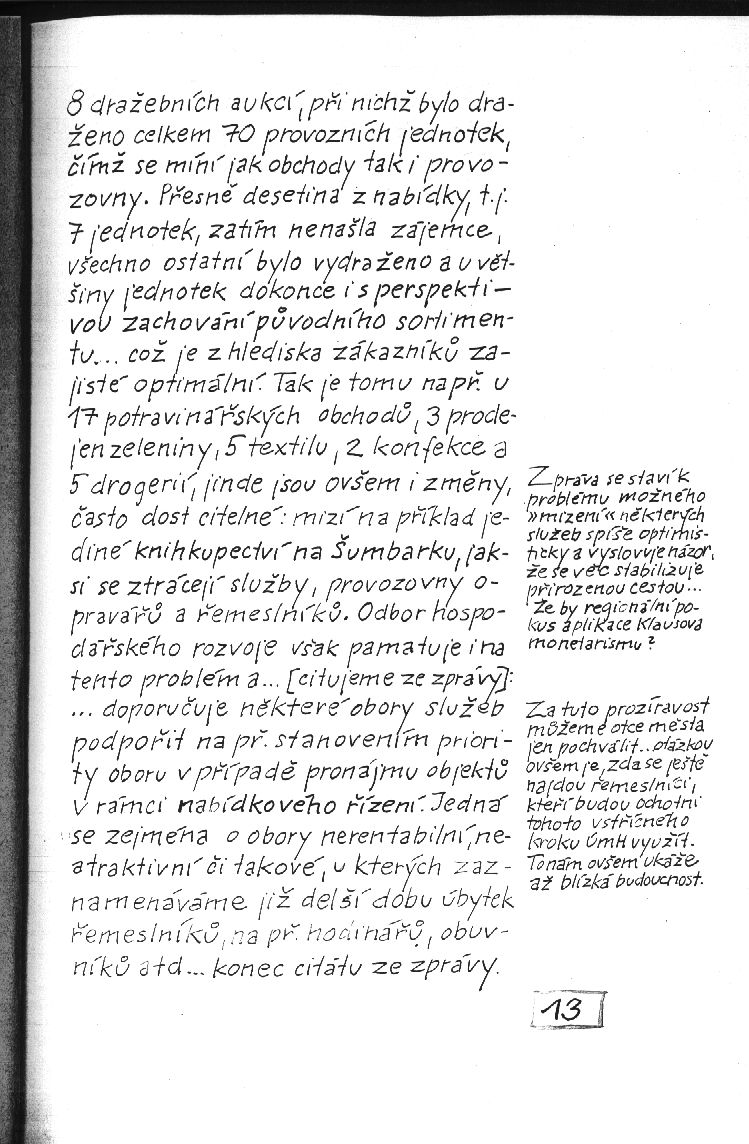 8 dražebních aukcí, při nichž bylo dra-
ženo celkem 70 provozních jednotek,
čímž se míní jak obchody tak i provo-
zovny. Přesně desetina z nabídky, t.j.
7 jednotek, zatím nenašla zájemce,
všechno ostatní bylo vydraženo a u vět-
šiny jednotek dokonce i s perspekti-
vou zachování původního sortimen-
tu... což je z hlediska zákazníků za-
jisté optimální. Tak je tomu např. u
17 potravinářských obchodů, 3 prode-
jen zeleniny, 5 textilu, 2 konfekce a
5 drogerií, jinde jsou ovšem i změny,
často dost citelné: mizí na příklad je-
diné knihkupectví na Šumbarku, jak-
si se ztrácejí služby, provozovny o-
pravářů a řemeslníků. Odbor hospo-
dářského rozvoje však pamatuje i na
tento problém a... [citujeme ze zprávy]:
... doporučuje některé obory služeb
podpořit na př. stanovením priori-
ty oboru v případě pronájmu objektů
v rámci nabídkového řízení. Jedná
se zejména o obory nerentabilní, ne-
atraktivní či takové, u kterých zaz-
namenáváme již delší dobu úbytek
řemeslníků, na př. hodinářů, obuv-
níků atd... konec citátu ze zprávy.
Zpráva se staví k
problému možného
»mizení« některých
služeb spíše optimis-
ticky a vyslovuje názor,
že se věc stabilizuje
přirozenou cestou...
Že by regionální po-
kus aplikace Klausova
monetarismu?
Za tuto prozíravost
můžeme otce města
jen pochválit...otázkou
ovšem je, zda se ještě
najdou řemeslníci,
kteří budou ochotni
tohoto vstřícného
kroku ÚmH využít.
To nám ovšem ukáže
až blízká budoucnost.
13